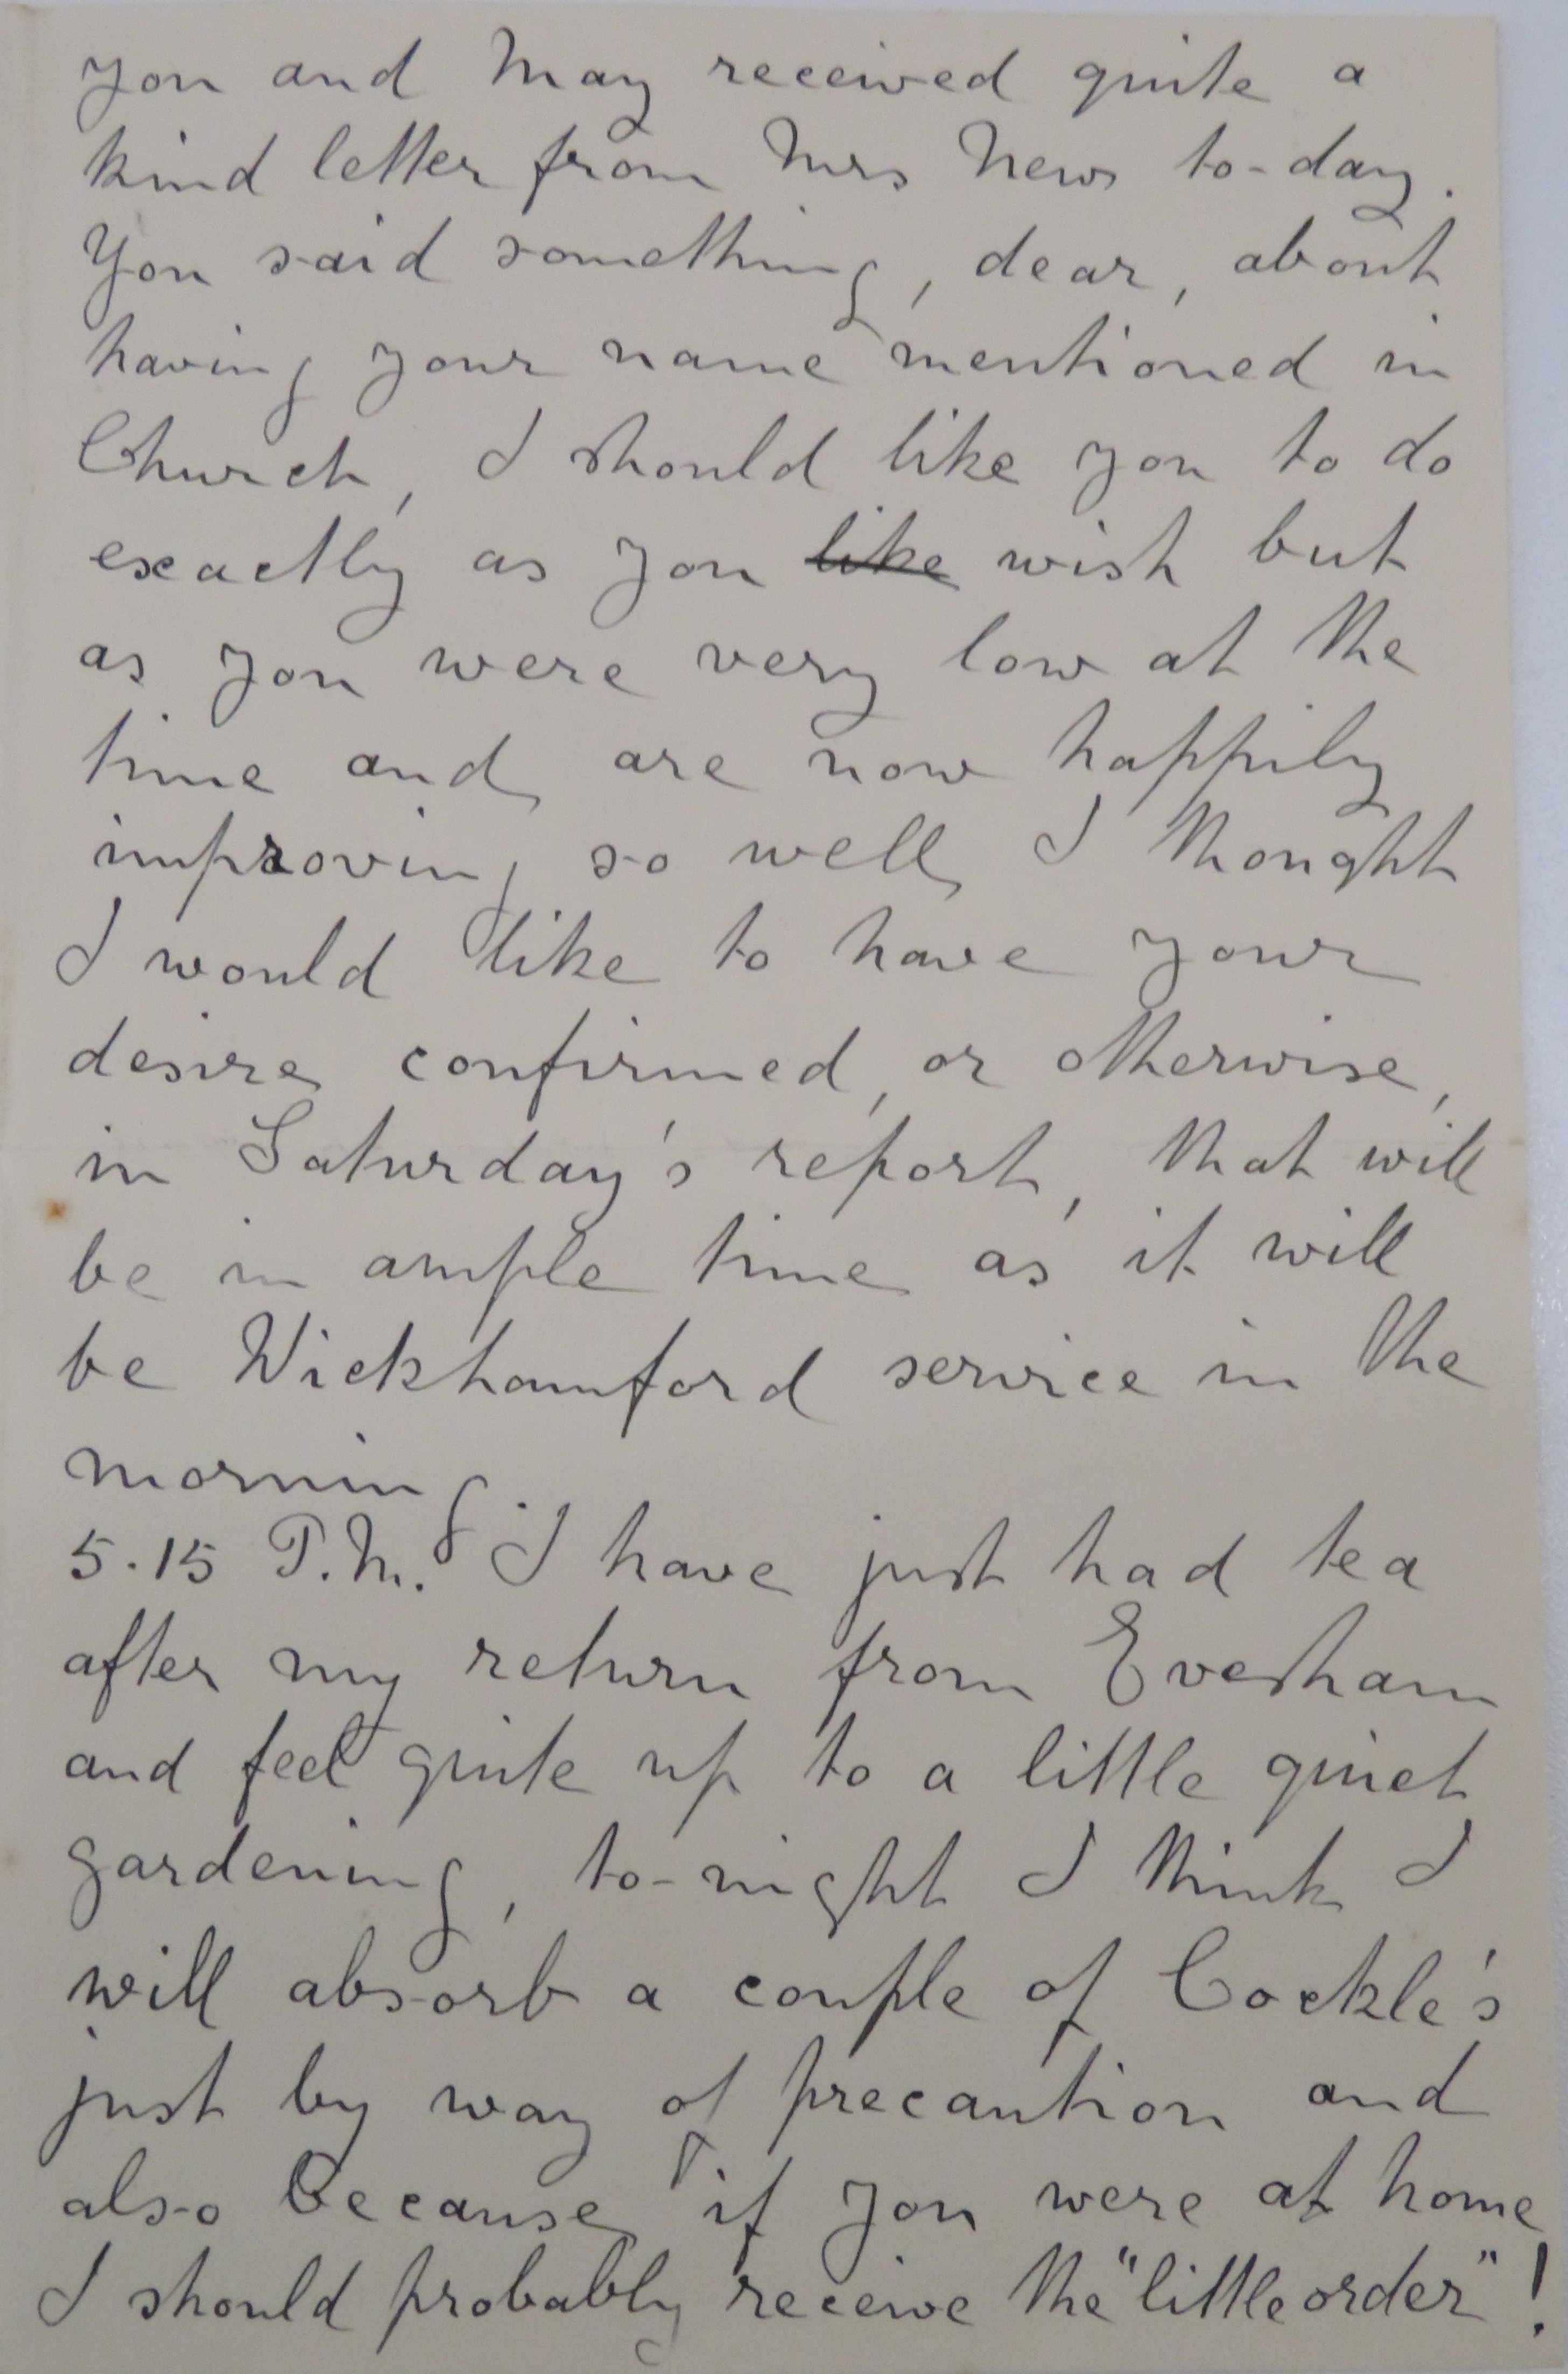 you and May received quite a
kind letter from Mrs New to-day.
You said something, dear, about
having your name mentioned in
Church, I should like you to do
exactly as you like wish but
as you were very low at the
time and are now happily
improving so well I thought
I would like to have your
desire confirmed, or otherwise,
in Saturday's report, that will
be in ample time as it will
be Wickhamford service in the
morning.
5.15 P.M. I have just had tea
after my return from Evesham
and feel quite up to a little quiet
gardening, to-night I think I
will absorb a couple of Cockle's
just by way of precaution and
also because if you were at home
I should probably receive the "little order"!